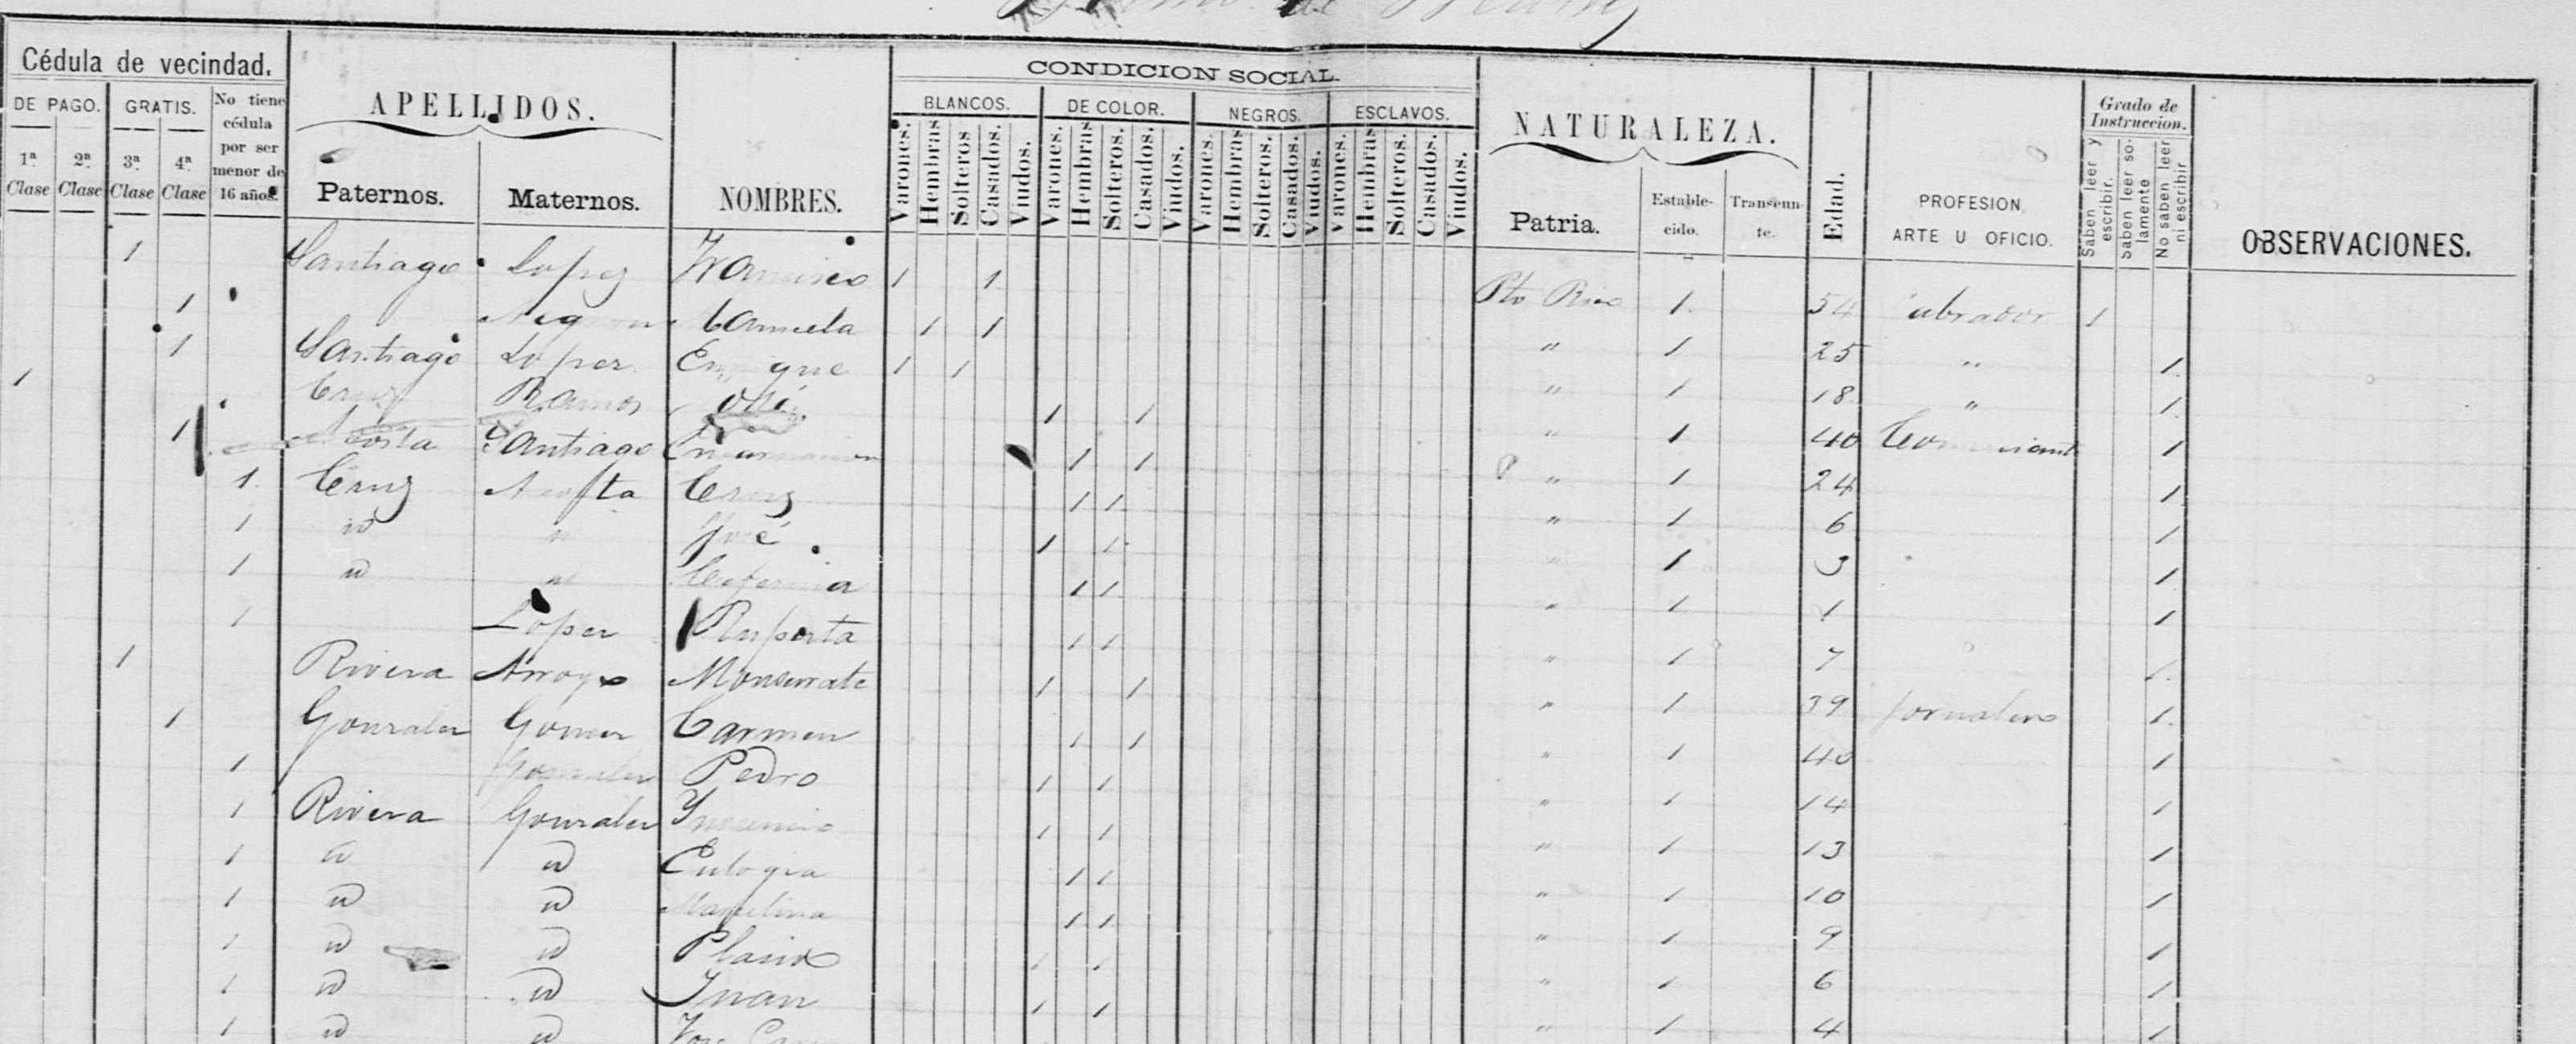 de
Cédula de vecindad. APELLIDOS. NOMBRES. CONDICION SOCIAL. NATURALEZA. Edad. PROFESION, ARTE U OFICIO. Grado de Instruccion. OBSERVACIONES.
DE PAGO. GRATIS. No tiene cédula por ser menor de 16 años. BLANCOS. DE COLOR. NEGROS. ESCLAVOS.
1ª Clase 2ª Clase 3ª Clase 4ª Clase Paternos. Maternos. Varones. Hembras Solteros Casados. Viudos. Varones. Hembras Solteros. Casados. Viudos. Varones. Hembras Solteros. Casados. Viudos. Varones. Hembras Solteros. Casados. Viudos. Patria. Estable-cido. Transeun-te. Saben leer y escribir. Saben leer so-lamente No saben leer ni escribir
1 Santiago Lopez Francisco 1 1 Pto Rico 1 54 Labrador 1
1 Manuela 1 1 " 1 25 " 1
1 Santiago Lopez Enrique 1 1 " 1 18 " 1
1 Cruz Ramos José 1 1 " 1 40 Comerciante 1
1 Acosta Santiago Encarnacion 1 1 " 1 24 1
1 Cruz Acosta Cruz 1 1 " 1 6 1
1 id id José 1 1 " 1 3 1
1 id id 1 1 " 1 1 1
1 Lopez Ruperta 1 1 " 1 7 1
1 Rivera Arroyo Monserrate 1 1 " 1 39 Jornalero 1
1 Gonzalez Gomez Carmen 1 1 " 1 40 1
1 Gonzalez Pedro 1 1 " 1 14 1
1 Rivera Gonzalez Ynocencio 1 1 " 1 13 1
1 id id Eulogia 1 1 " 1 10 1
1 id id Marcelina 1 1 " 1 9 1
1 id id Placido 1 1 " 1 6 1
1 id id Juan 1 1 " 1 4 1
1 id id